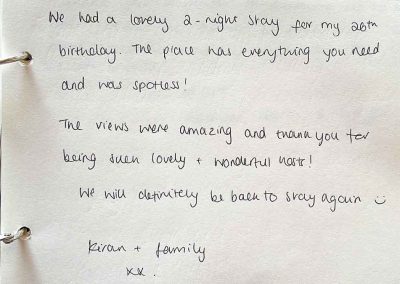 We had a lovely 2-night stay for my 26th
birthday. The place has everything you need
and was spotless!
The views were amazing and thank you for
being such lovely + wonderful hosts!
We will definitely be back to stay again ☺
Kiran + family
xx.